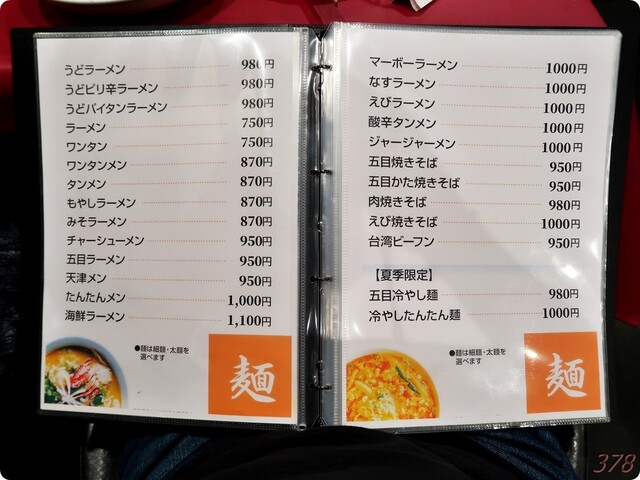 うどラーメン 980円
うどピリ辛ラーメン 980円
うどパイタンラーメン 980円
ラーメン 750円
ワンタン 750円
ワンタンメン 870円
タンメン 870円
もやしラーメン 870円
みそラーメン 870円
チャーシューメン 950円
五目ラーメン 950円
天津メン 950円
たんたんメン 1,000円
海鮮ラーメン 1,100円
●麺は細麺・太麺を
選べます
麺
マーボーラーメン 1000円
なすラーメン 1000円
えびラーメン 1000円
酸辛タンメン 1000円
ジャージャーメン 1000円
五目焼きそば 950円
五目かた焼きそば 950円
肉焼きそば 980円
えび焼きそば 1000円
台湾ビーフン 950円
【夏季限定】
五目冷やし麺 980円
冷やしたんたん麺 1000円
●麺は細麺・太麺を
選べます
麺
378